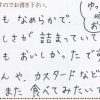 すのでお書き下さい。
もなめらかで、
しさが詰まっていて
もおいしかったです
んや、カスタードなど
また食べてみたいで
ゆっ